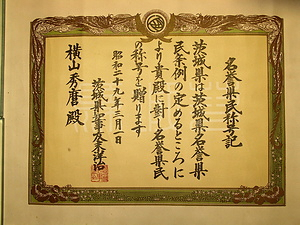 名誉県民称号記
茨城県は茨城県名誉県
民条例の定めるところに
より貴殿に対し名誉県民
の称号を贈ります
昭和二十九年三月一日
茨城県知事友末洋治
横山秀麿殿